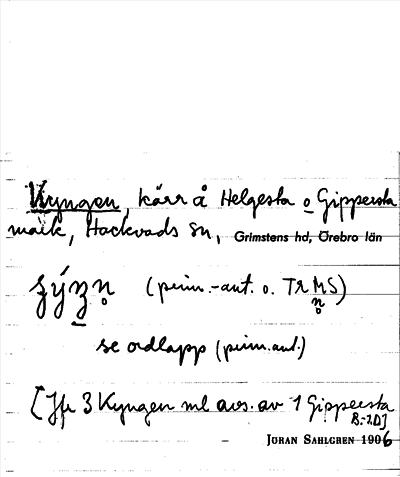 Kyngen, kärr å Helgesta o Gippersta
mark, Hackvads sn, Grimstens hd, Örebro län
(prim.-ant. o. Tr MS)
n
se ordlapp (prim.ant.)
[Jfr 3 Kyngen ml avs. av 1 Gippersta
B.-I.D]
JÖRAN SAHLGREN 1906